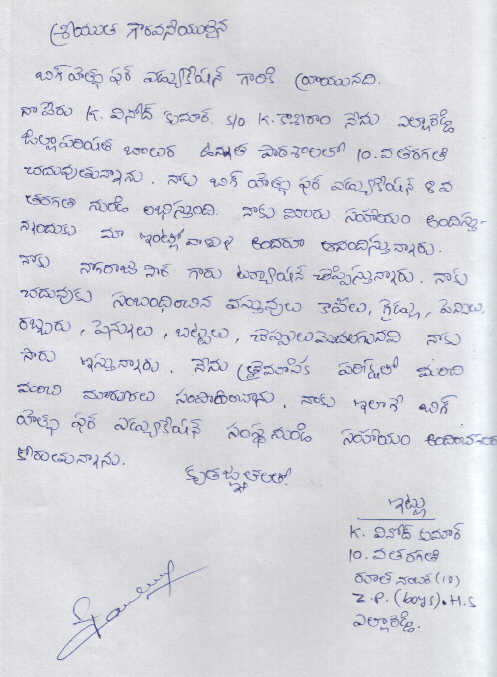 శ్రీయుత గౌరవనీయులైన
బిగ్ హెల్ప్ ఫర్ ఎడ్యుకేషన్ గారికి వ్రాయునది.
నా పేరు K. వినోద్ కుమార్. S/o K. కాశీరాం నేను ఎల్లారెడ్డి
జిల్లా పరిషత్ బాలుర ఉన్నత పాఠశాలలో 10. వ తరగతి
చదువుతున్నాను. నాకు బిగ్ హెల్ప్ ఫర్ ఎడ్యుకేషన్ 8 వ
తరగతి నుండి లభిస్తుంది. నాకు మీరు సహాయం అందిస్తు-
న్నందుకు మా ఇంట్లో వాళ్ళు అందరూ ఆనందిస్తున్నారు.
నాకు నాగరాజు సార్ గారు ట్యూషన్ చెప్పిస్తున్నారు. నాకు
చదువుకు సంబంధించిన వస్తువులు కాపీలు, గైడ్లు, పెన్సిలు,
రబ్బరు, పెన్నులు, బట్టలు, చెప్పులు మొదలగునవి నాకు
సారు ఇస్తున్నారు. నేను త్రైమాసిక పరీక్షలో మంచి
మంచి మార్కులు సంపాదించాను. నాకు ఇలాగే బిగ్
హెల్ప్ ఫర్ ఎడ్యుకేషన్ సంస్థ నుండి సహాయం
కోరుచున్నాను.
కృతజ్ఞతలతో
ఇట్లు
K. వినోద్ కుమార్
10. వ తరగతి
రూల్ నంబర్ (18)
Z.P. (boys). H.S
ఎల్లారెడ్డి.